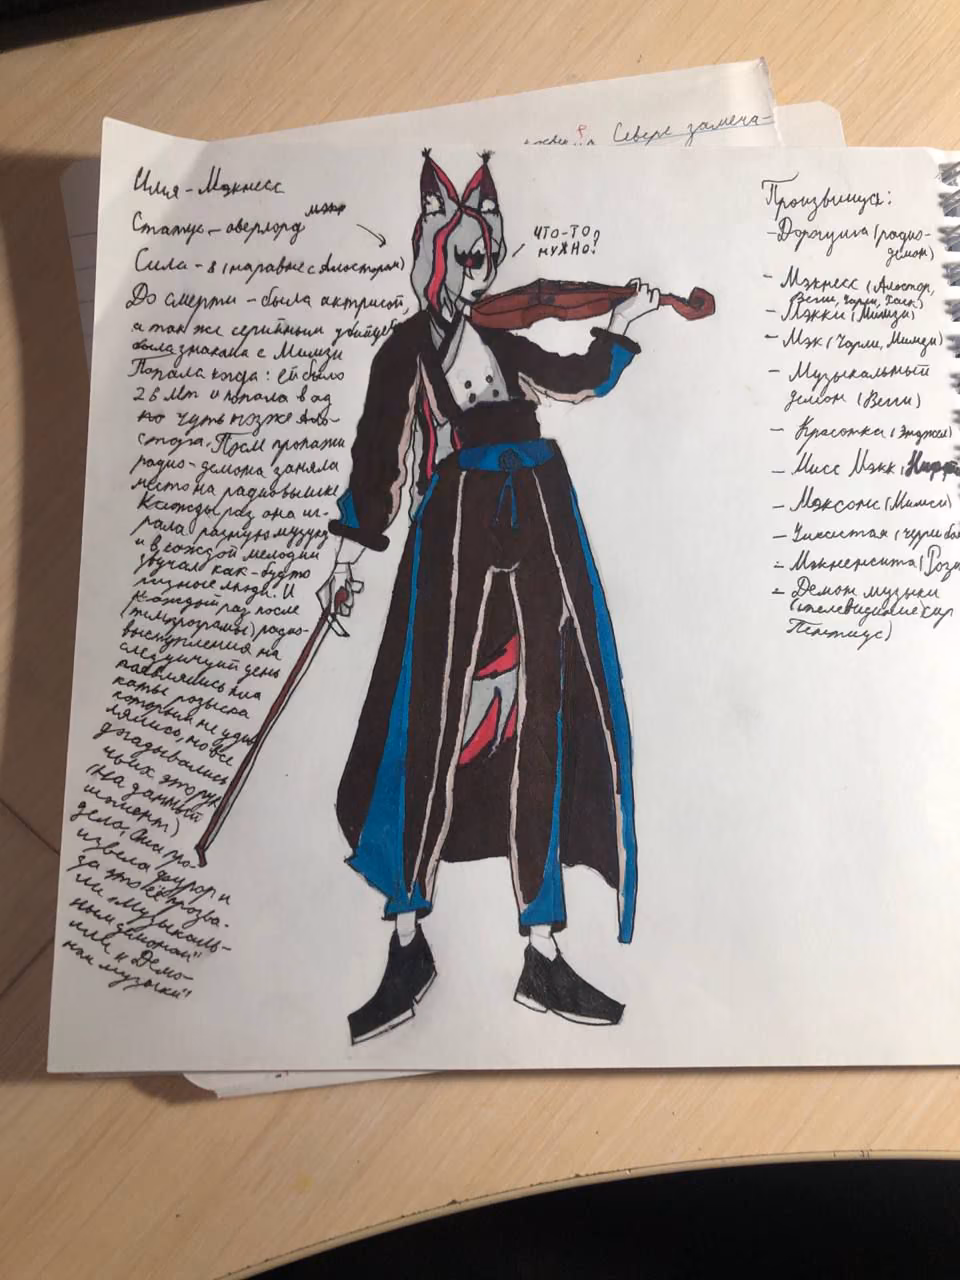 Севере замеча-
Имя - Мэкнесс
Статус - оверлорд
мэк
Сила - 8 (наравне с Аластором)
До смерти - была актрисой,
а так же серийным убийцей
была знакома с Мимзи
Попала когда: ей было
26 лет и попала в ад
но чуть позже Ало-
стора. После пропажи
радио-демона заняла
место на радиовышке
Каждый раз она иг-
рала разную музыку
и в каждой мелодии
звучал как-будто
разные люди. И
каждый раз после
радио-
выступления на
следующий день
появлялись пла
каты розыска
которым не удив
лялись, но все
догадывались
чьих это рук
(на данный
момент)
дело. Она про-
извела фурор и
за это её прозва-
ли "Музыкаль-
ным демоном"
или и "Демо-
ном музыки"
ЧТО-ТО
НУЖНО?
Произвищус:
- Дорогуша (радио-
демон)
- Мэкнесс (Алостор,
Вегги, Чарли, Хаск)
- Мэкки (Мимзи)
- Мэк (Чарли, Мимзи)
- Музыкальный
демон (Вегги)
- Красотка (Энджел)
- Мисс Мэкк (Ниффти
- Мэксонс (Мимси)
- (Черри бо
- (Рози
- Демон музыки
(телевидение, сэр
Пентиус)